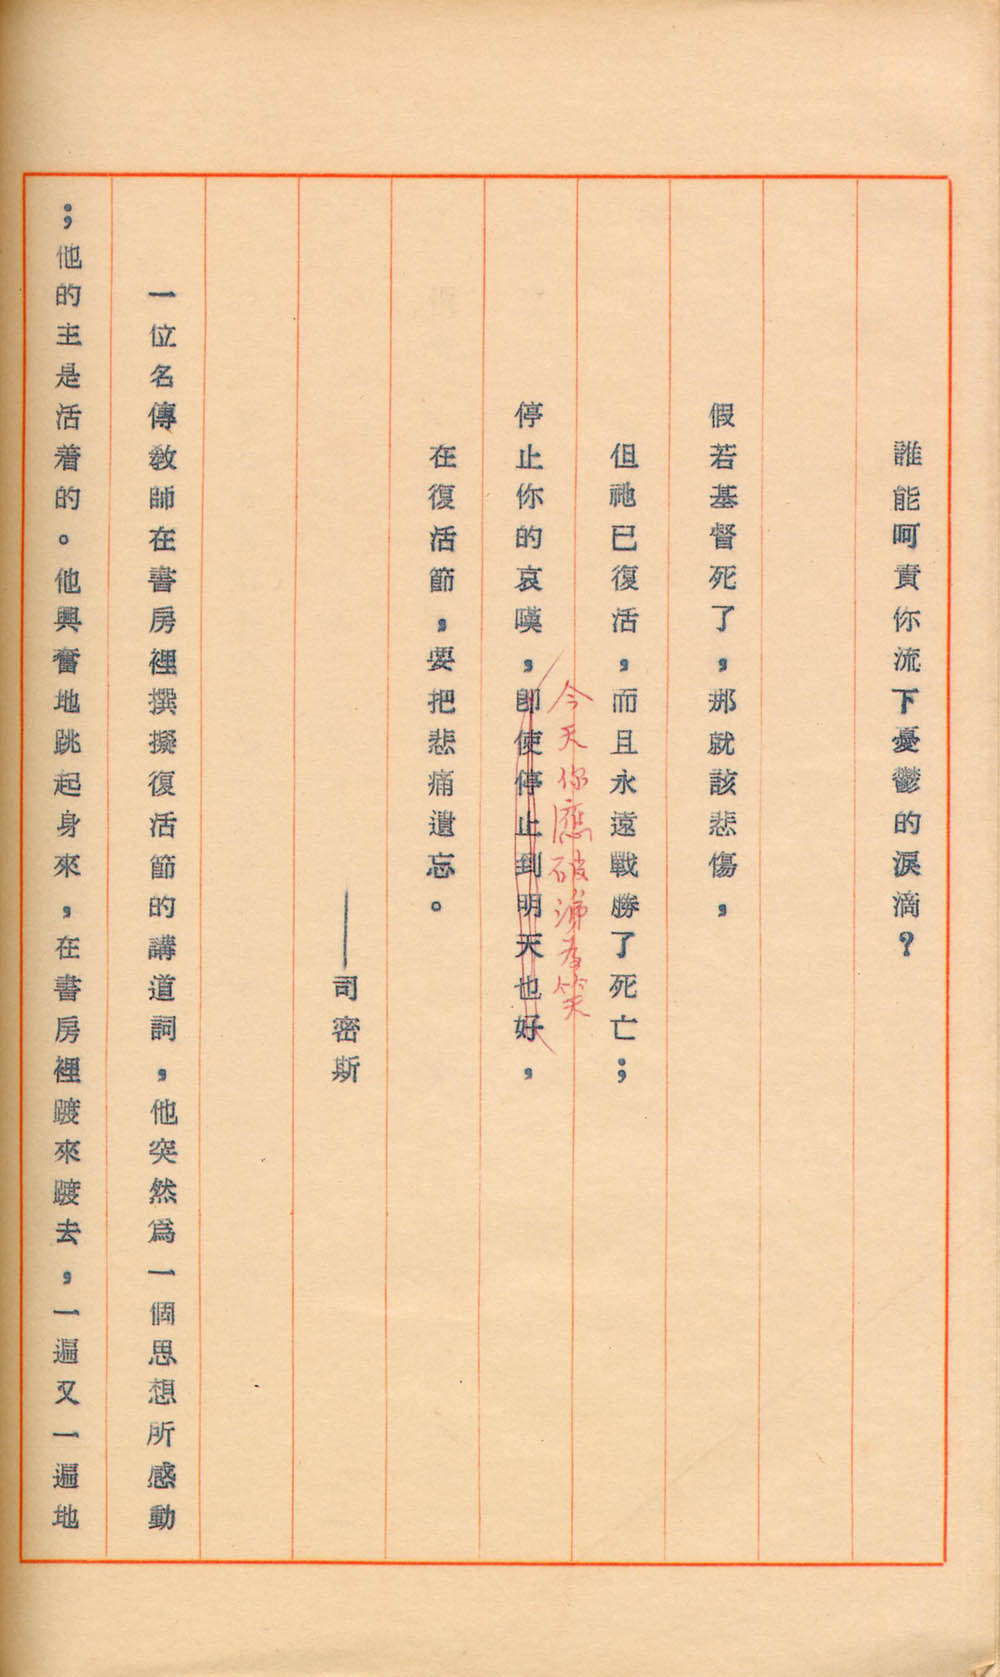 誰能呵責你流下憂鬱的淚滴？
假若基督死了，那就該悲傷，
但祂已復活，而且永遠戰勝了死亡；
今天你應破涕為笑
停止你的哀嘆，即使停止到明天也好，
在復活節，要把悲痛遺忘。
——司密斯
一位名傳教師在書房裡撰擬復活節的講道詞，他突然為一個思想所感動
；他的主是活着的。他興奮地跳起身來，在書房裡踱來踱去，一遍又一遍地